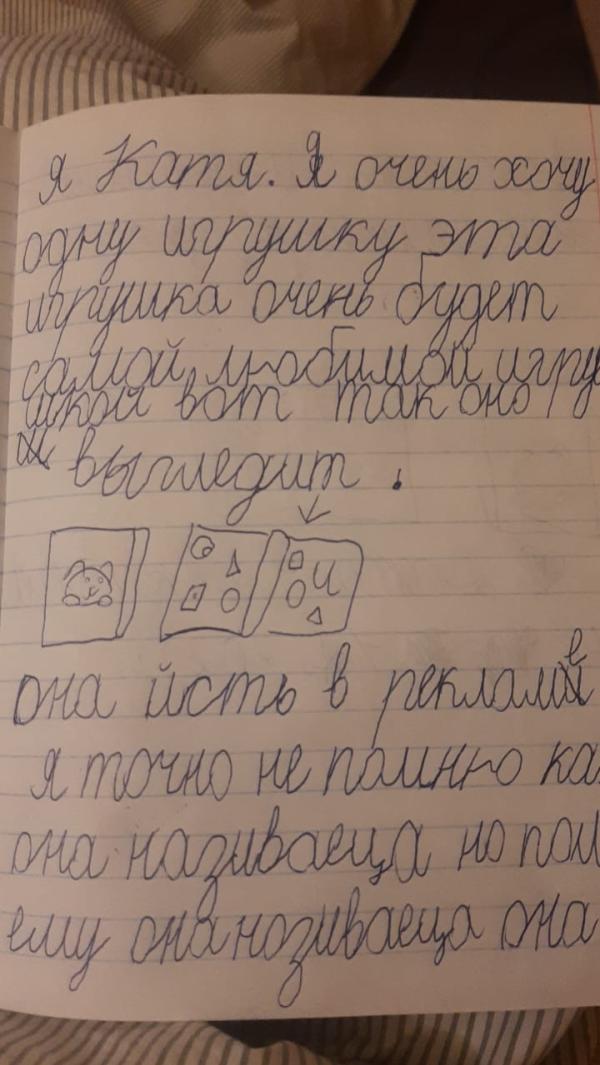 я Катя. Я очень хочу
одну игрушку эта
игрушка очень будет
самой любимой игру
шкой вот так оно
выгледит.
и
она йсть в рекламе
я точно не помню ка
она називаеца но пом
ему она називаеца она